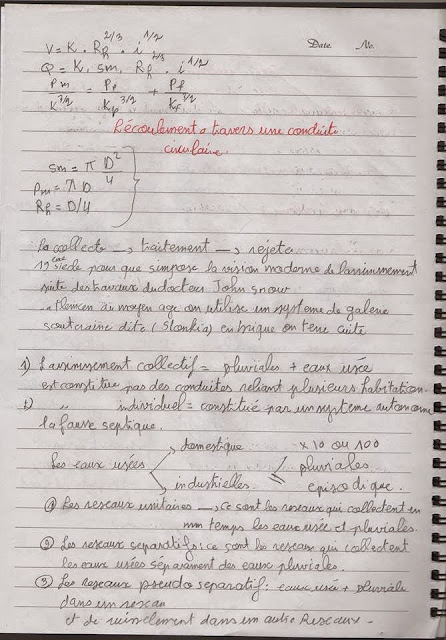 Date No.
V = K . Rh^2/3 . i^1/2
Q = K . Sm . Rh^2/3 . i^1/2
Pm/K^3/2 = Pp/Kp^3/2 + Pf/Kf^3/2
L'écoulement a travers une conduite
circulaire
Sm = π D²/4
Pm = π D
Rh = D/4
La collecte → traitement → rejete
19 siècle pour que simpose la vision moderne de lassinissement
suite des travaux du docteur John snow
du moyen age on utilise un systeme de galerie
soutraine dite en brique on terre cuite
1) L'assinissement collectif = pluviales + eaux usée
est constitue par des conduites reliant plusieurs habitation.
2) " individuel = constitué par un systeme autonome
la fausse septique.
Les eaux usées domestique x10 ou 100
industrielles // pluviales
episodique.
① Les reseaux unitaires → ce sont les reseaux qui collectent en
mm temps les eaux usée et pluviales.
② Les reseaux separatifs : ce sont les reseaux qui collectent
les eaux usées separament des eaux pluviales.
③ Les reseaux pseudo separatif : eaux usée + pluviale
dans un reseau
et de ruisselement dans un autre Reseaux.